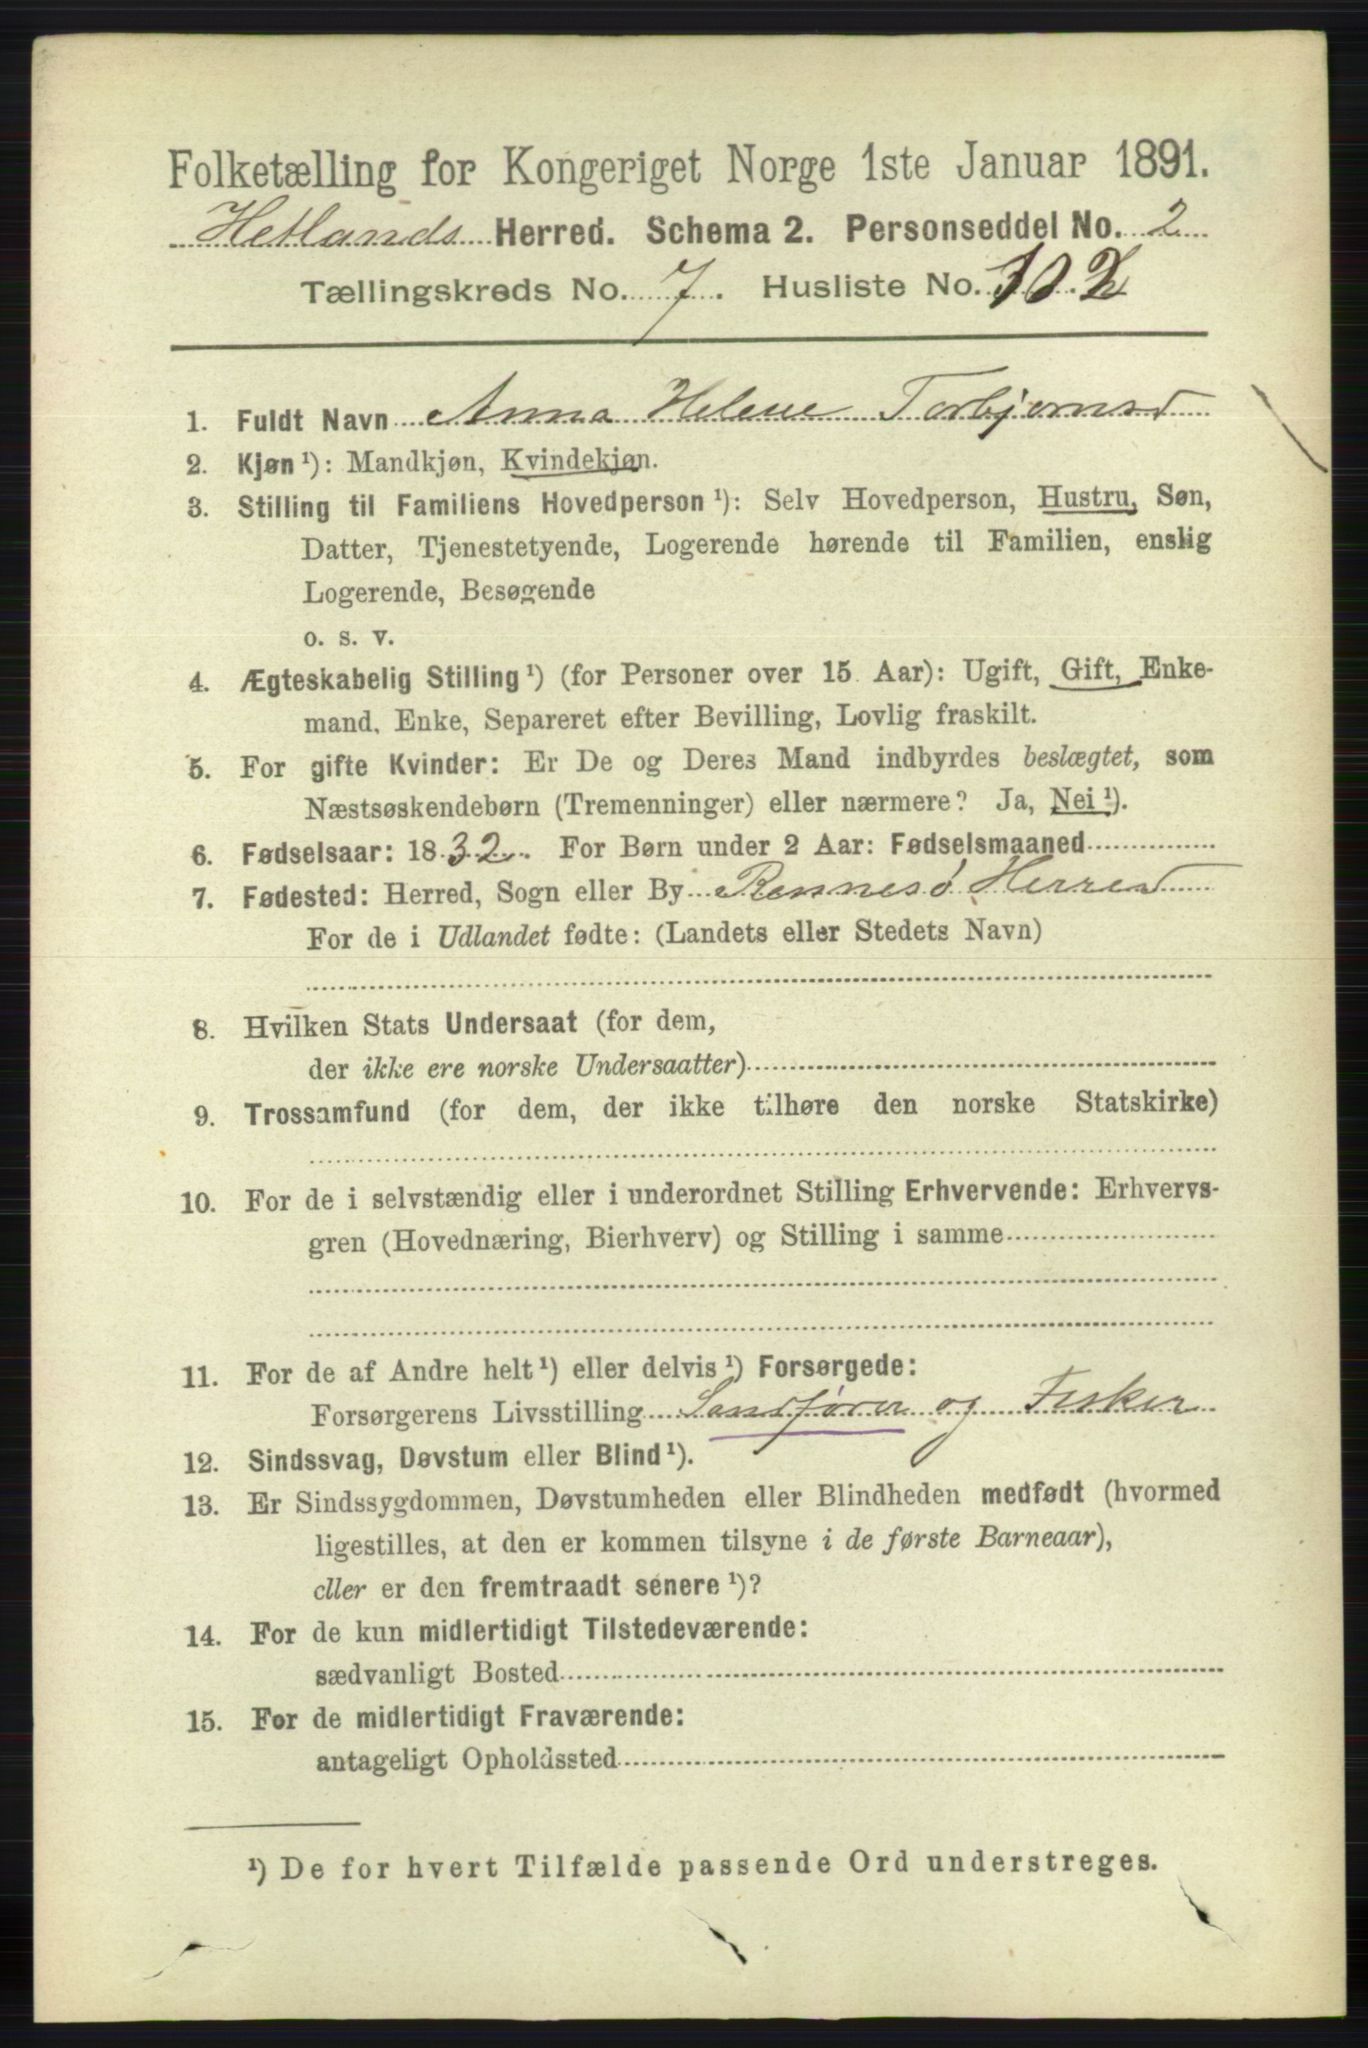 Folketælling for Kongeriget Norge 1ste Januar 1891.
Hetlands Herred. Schema 2. Personseddel No. 2
Tællingskreds No. 7. Husliste No. 102
1. Fuldt Navn Anna Helene Torbjørnsd
2. Kjøn ¹): Mandkjøn, Kvindekjøn.
3. Stilling til Familiens Hovedperson ¹): Selv Hovedperson, Hustru, Søn,
Datter, Tjenestetyende, Logerende hørende til Familien, enslig
Logerende, Besøgende
o. s. v.
4. Ægteskabelig Stilling ¹) (for Personer over 15 Aar): Ugift, Gift, Enke-
mand, Enke, Separeret efter Bevilling, Lovlig fraskilt.
5. For gifte Kvinder: Er De og Deres Mand indbyrdes beslægtet, som
Næstsøskendebørn (Tremenninger) eller nærmere? Ja, Nei ¹).
6. Fødselsaar: 1832. For Børn under 2 Aar: Fødselsmaaned
7. Fødested: Herred, Sogn eller By Rennesø Herred
For de i Udlandet fødte: (Landets eller Stedets Navn)
8. Hvilken Stats Undersaat (for dem,
der ikke ere norske Undersaatter)
9. Trossamfund (for dem, der ikke tilhøre den norske Statskirke)
10. For de i selvstændig eller i underordnet Stilling Erhvervende: Erhvervs-
gren (Hovednæring, Bierhverv) og Stilling i samme
11. For de af Andre helt ¹) eller delvis ¹) Forsørgede:
Forsørgerens Livsstilling Sandfører og Fisker
12. Sindssvag, Døvstum eller Blind ¹).
13. Er Sindssygdommen, Døvstumheden eller Blindheden medfødt (hvormed
ligestilles, at den er kommen tilsyne i de første Barneaar),
eller er den fremtraadt senere ¹)?
14. For de kun midlertidigt Tilstedeværende:
sædvanligt Bosted
15. For de midlertidigt Fraværende:
antageligt Opholdssted
¹) De for hvert Tilfælde passende Ord understreges.